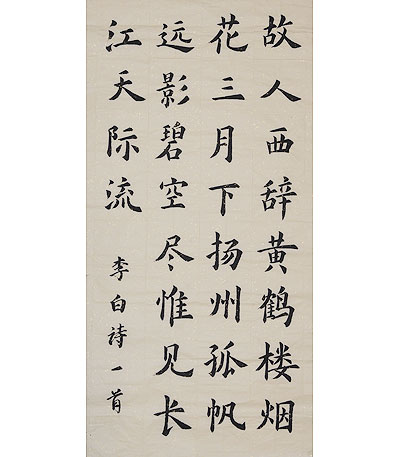 故人西辞黄鹤楼烟
花三月下扬州孤帆
远影碧空尽惟见长
江天际流
李白诗一首